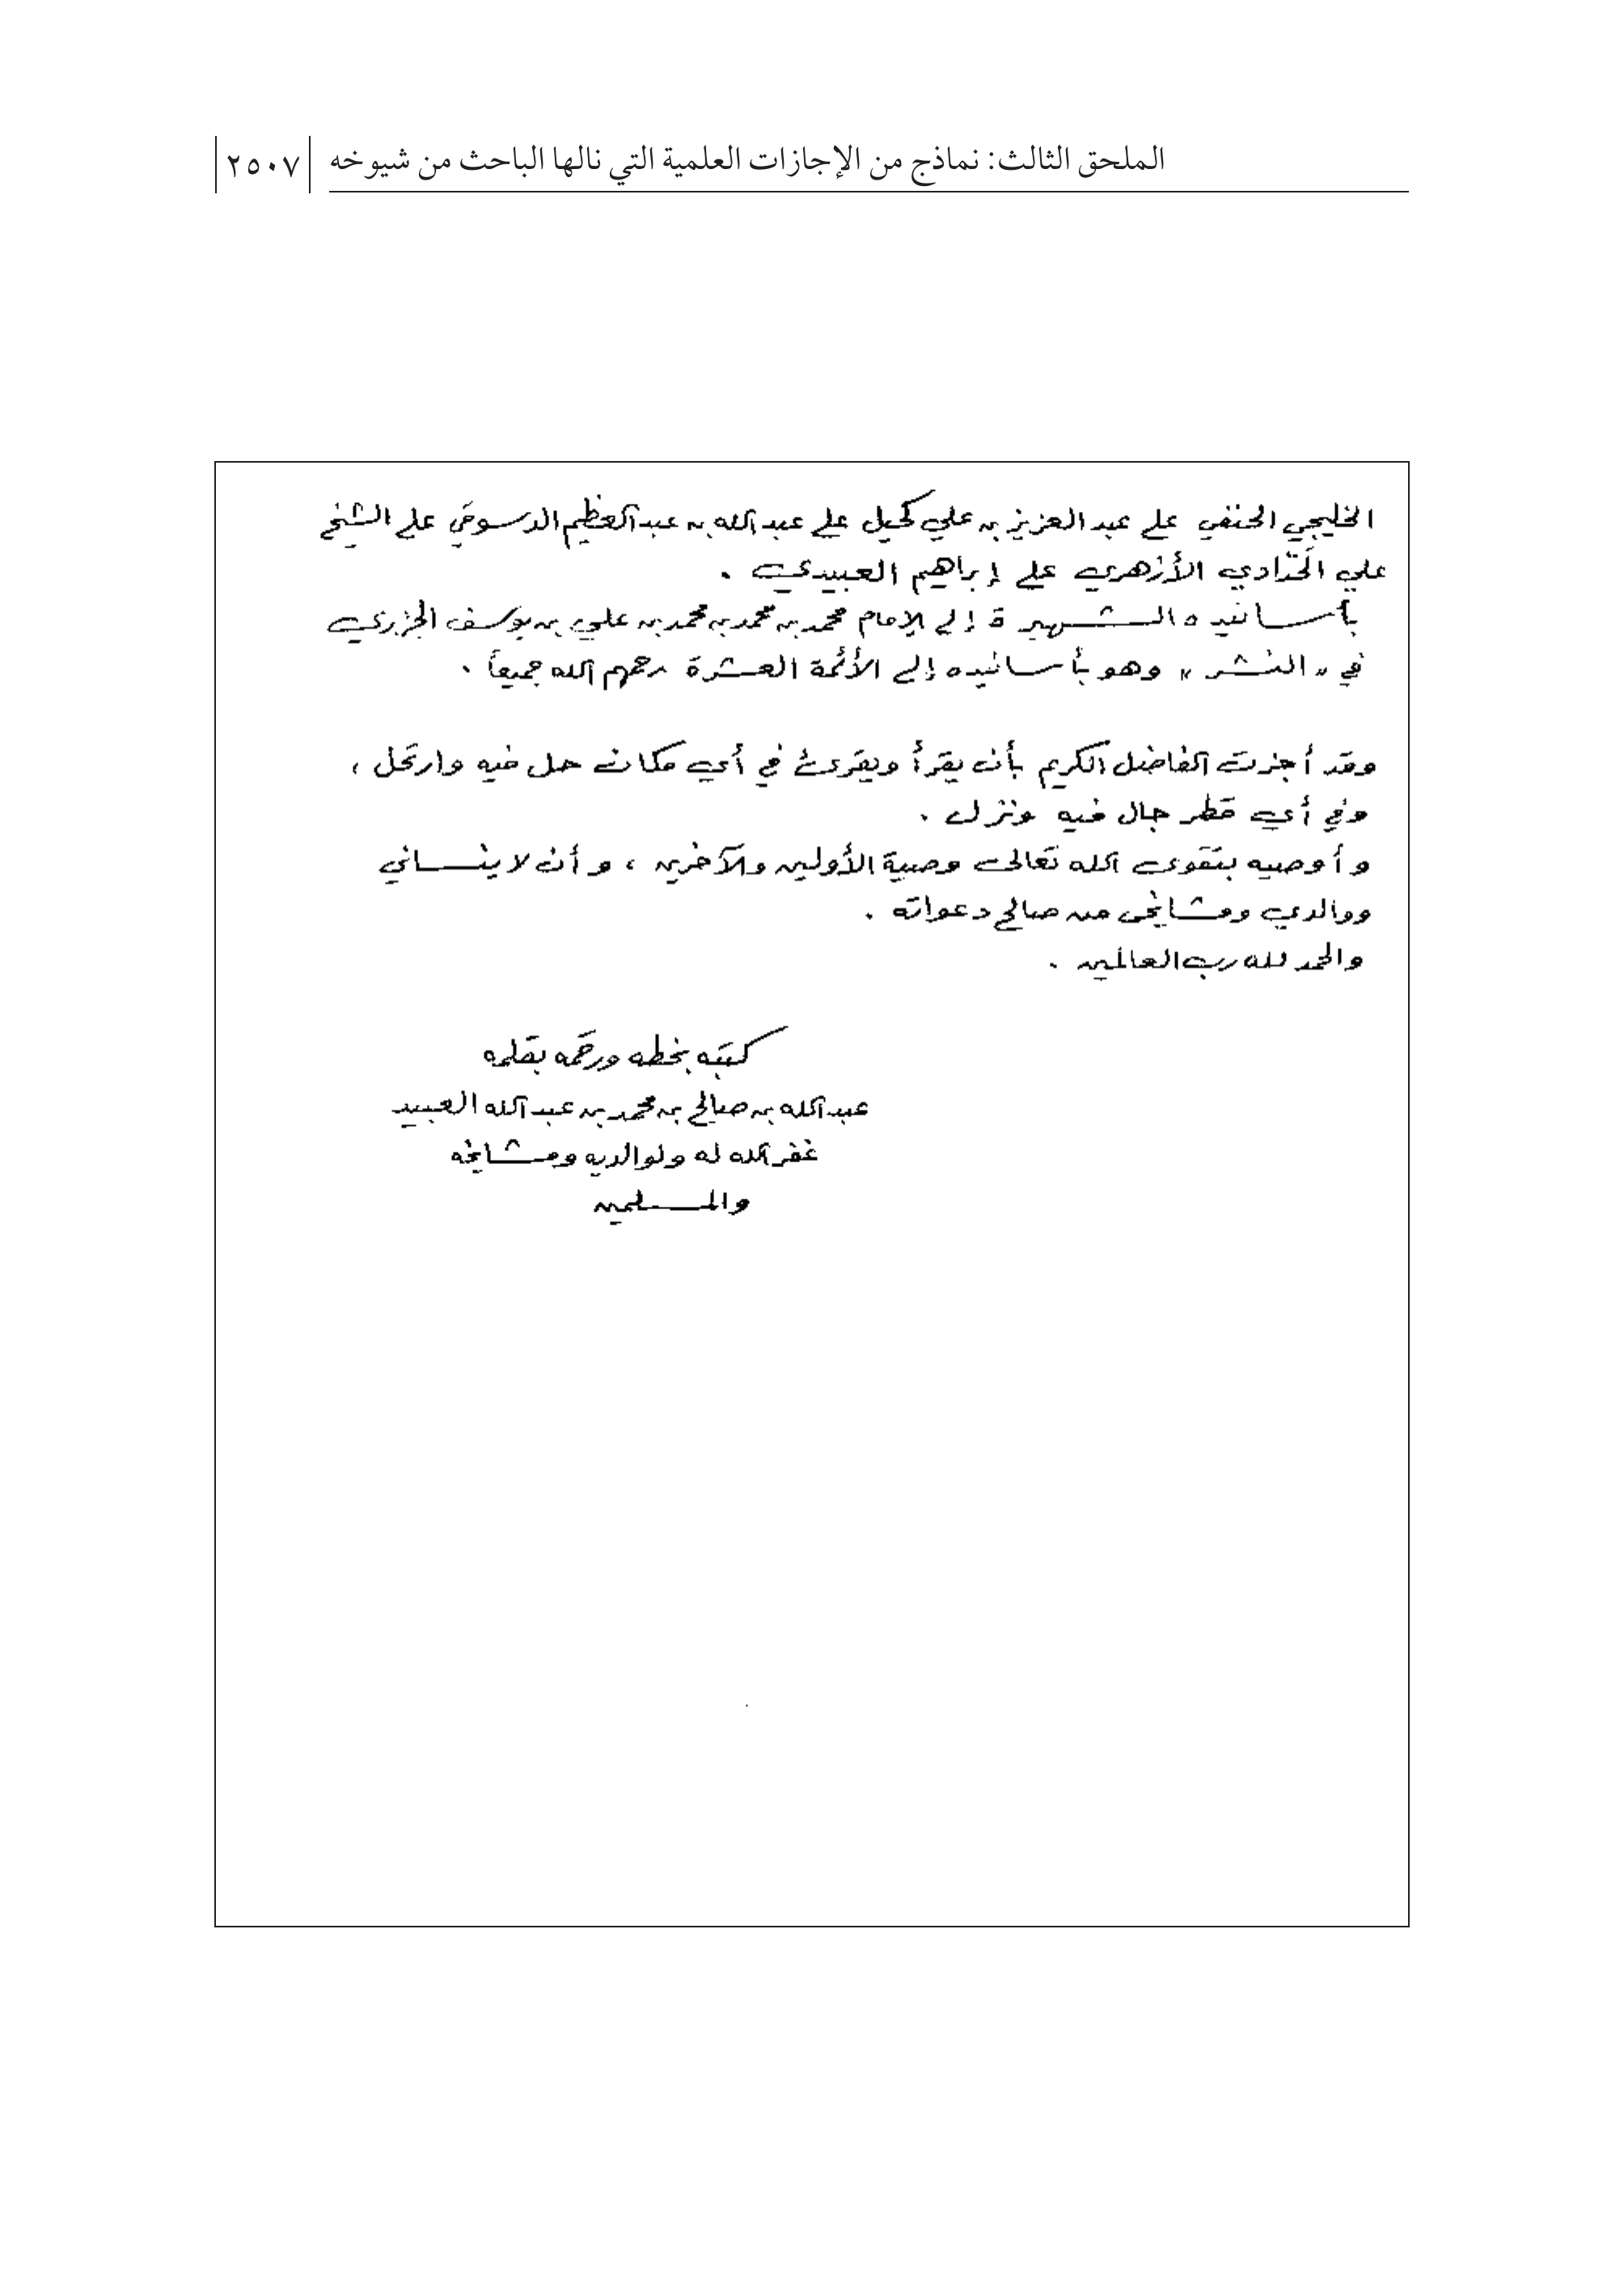 الملحق الثالث: نماذج من الإجازات العلمية التي نالها الباحث من شيوخه ٢٥٠٧
الخليجي الحنفي على عبد العزيز بن علي كحيل على عبد الله بن عبد العظيم الدسوقي على الشيخ
علي الحدادي الأزهري على إبراهيم العبيدي .
بأسانيده الشهيرة إلى الإمام محمد بن محمد بن محمد بن علي بن يوسف الجزري
في « النشر » وهو بأسانيده إلى الأئمة العشرة رحمهم الله جميعاً .
وقد أجزت الفاضل الكريم بأن يقرأ ويقرئ في أي مكان حل فيه وارتحل ،
وفي أي قطر جال فيه ونزل .
وأوصيه بتقوى الله تعالى وصية الأولين والآخرين ، وأن لا ينساني
ووالدي ومشايخي من صالح دعواته .
والحمد لله رب العالمين .
كتبه بخطه ورقمه بقلمه
عبد الله بن صالح بن محمد بن عبد الله العبيد
غفر الله له ولوالديه ومشايخه
والمسلمين